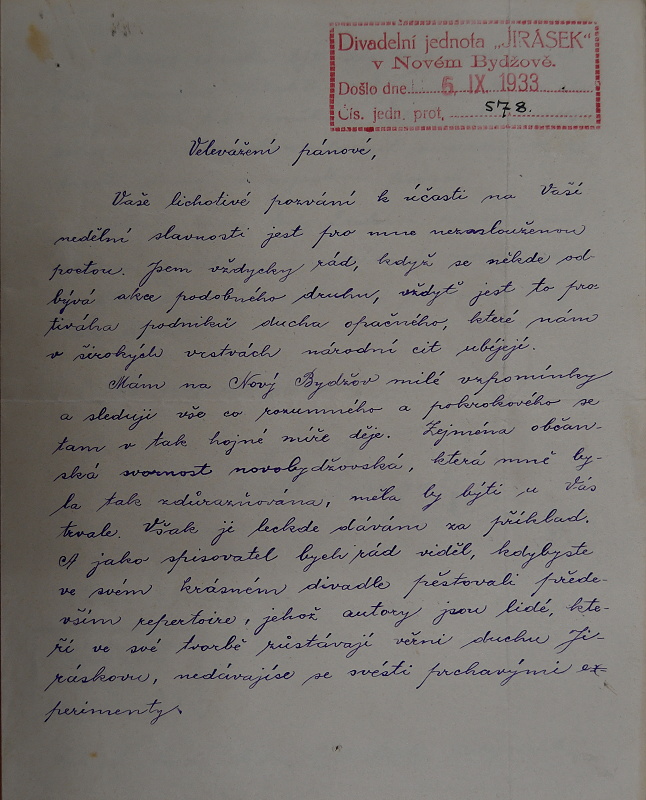 Divadelní jednota „JIRÁSEK“
v Novém Bydžově.
Došlo dne 6. IX. 1933
Čís. jedn. prot. 578.
Velevážení pánové,
Vaše lichotivé pozvání k účasti na Vaší
nedělní slavnosti jest pro mne nezaslouženou
poctou. Jsem vždycky rád, když se někde od-
bývá akce podobného druhu, vždyť jest to pro-
tiváha podniků ducha opačného, které nám
v širokých vrstvách národní cit ubíjejí.
Mám na Nový Bydžov milé vzpomínky
a sleduji vše co rozumného a pokrokového se
tam v tak hojné míře děje. Zejména občan-
ská svornost novobydžovská, která mně by-
la tak zdůrazňována, měla by býti u Vás
trvale. Však ji leckde dávám za příklad.
A jako spisovatel bych rád viděl, kdybyste
ve svém krásném divadle pěstovali přede-
vším repertoire, jehož autory jsou lidé, kte-
ří ve své tvorbě zůstávají věrni duchu Ji-
ráskovu, nedávajíce se svésti prchavými ex-
perimenty.